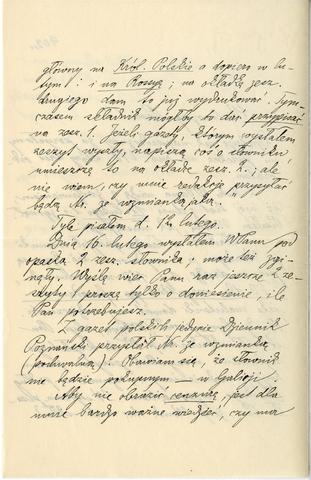 główny na Król. Polskie a dopiero w lu-
tym! i na Rossyę; na okładkę zesz.
drugiego dam to już wydrukować. Tym-
czasem składnik mógłby to dać przypisać
na zesz. 1. Jeżeli gazety, którym wysłałem
zeszyt wyszły, napiszą coś o słowniku,
umieszczę to na okładce zesz. 2.; ale
nie wiem, czy mnie redakcje przysyłać
będą Nr. ze wzmianką jaką.
Tyle pisałem d. 12 lutego.
Dnia 16. lutego wysłałem WPanu pod
opaską 2 zesz. słownika; może też zgi-
nęły. Wyślę więc Panu raz jeszcze 2 ze-
szyty i proszę tylko o doniesienie, ile
Pan potrzebujesz.
Z gazet polskich jedynie Dziennik
Poznański przysłał Nr. ze wzmianką
(pochwalną). Obawiam się, że słownik
nie będzie pokupnym — w Galicji.
Aby nie obrazić cenzurę, jest dla
mnie bardzo ważne wiedzieć, czy ma